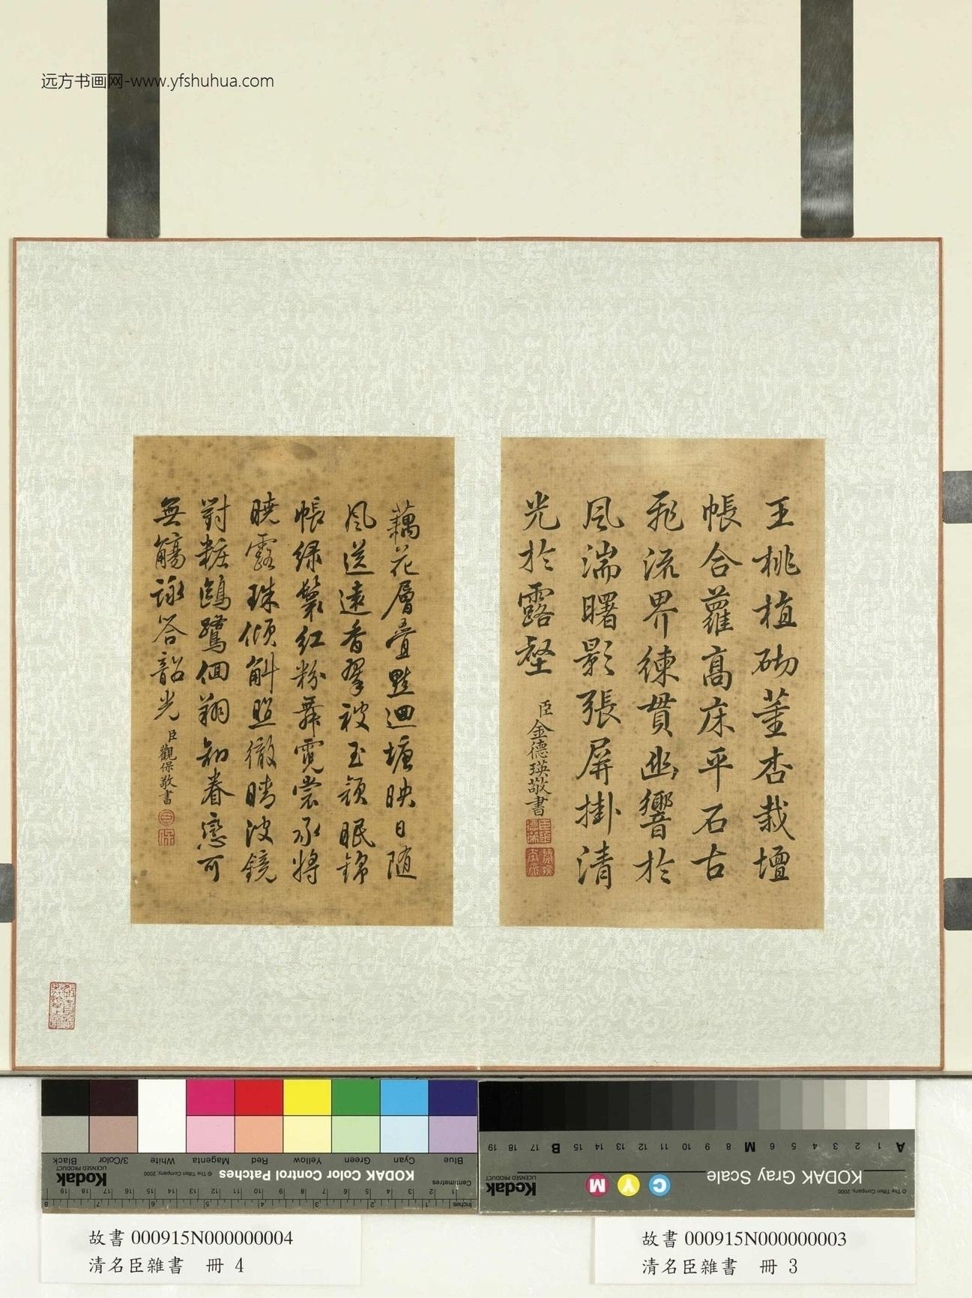 远方书画网-www.yfshuhua.com
王桃植砌董杏栽壇
帳合蘿高床平石古
飛流界練貫幽響於
風湍曙影張屏掛清
光於露壑
臣金德瑛敬書
藕花層疊點迴塘映日随
風送遠香翠被玉頹眠錦
帳绿鬟红粉舞霓裳承將
曉露珠傾斛照徹晴波鏡
對粧鷗鷺佪翔知眷戀可
無觴詠答韶光
臣觀保敬書
Blue Green Yellow Red Magenta White 3/Color Black
KODAK Color Control Patches
© The Tiffen Company, 2000
Kodak
LICENSED PRODUCT
Centimetres
Inches
A 1 2 3 4 5 6 M 8 9 10 11 12 13 14 15 B 17 18 19
KODAK Gray Scale
C Y M
Kodak
LICENSED PRODUCT
© The Tiffen Company, 2000
故書 000915N000000004
清名臣雜書 冊 4
故書 000915N000000003
清名臣雜書 冊 3